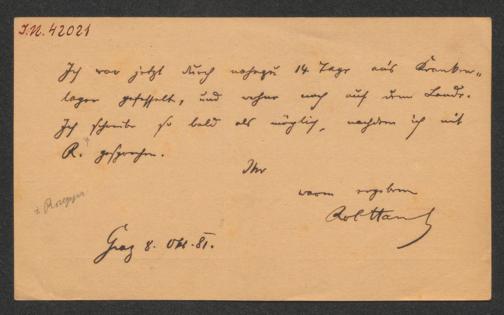 J.N. 42021
Ich war jetzt durch nahezu 14 Tage ans Kranken-
lager gefesselt, und wohne noch auf dem Lande.
Ich schreibe so bald als möglich, nachdem ich mit
R. gesprochen.
Ihr
warm ergebener
x Rosegger
Graz 8. Okt. 81.